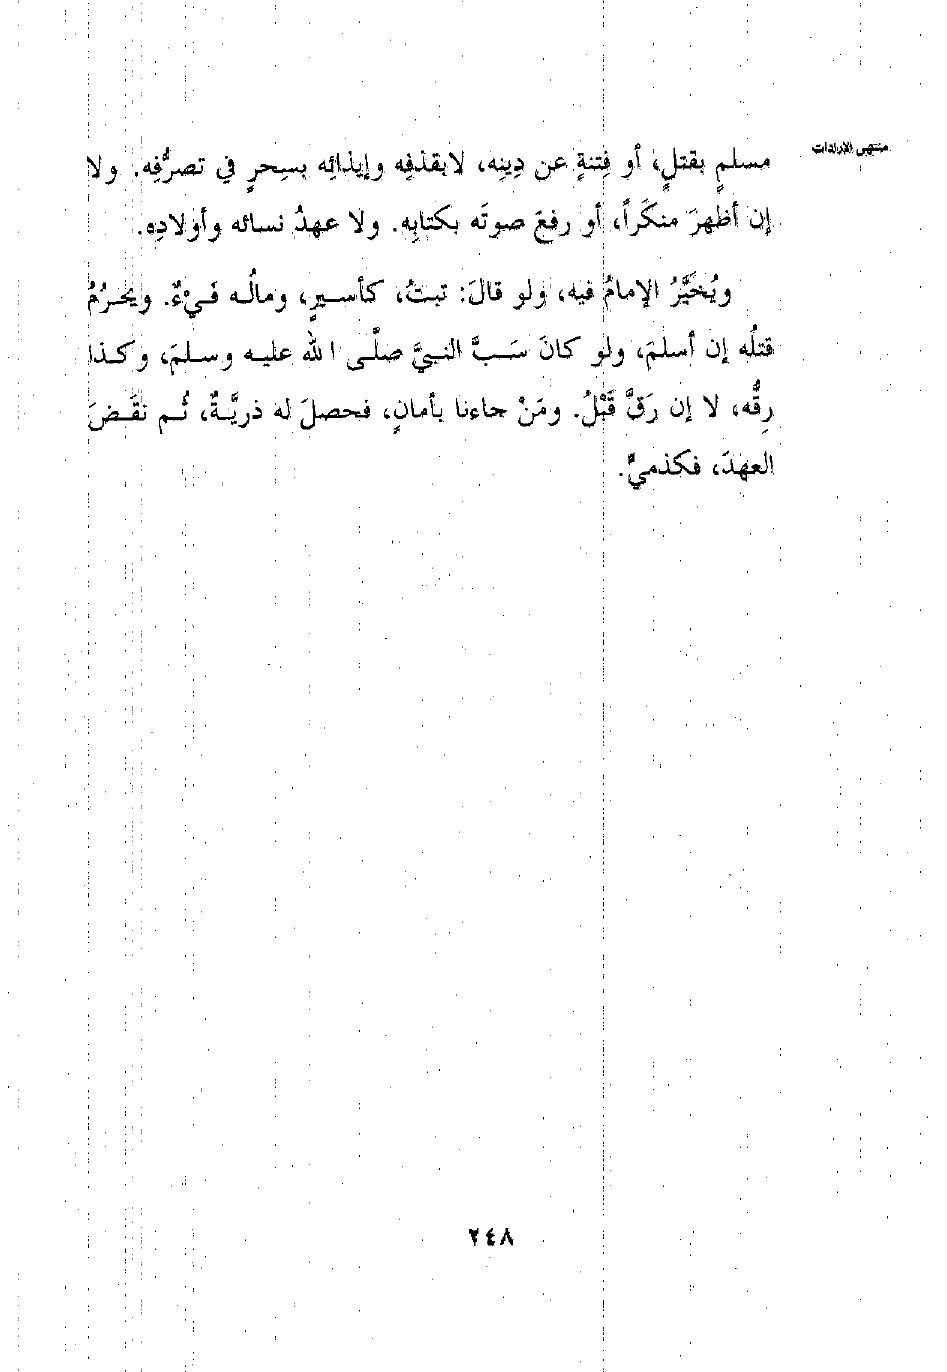 منتهى الإرادات
مسلمٍ بقتلٍ، أو فِتنةٍ عن دِينِه، لابقذفِه وإيذائِه بسِحرٍ في تصرُّفِه. ولا
إن أظهرَ منكَراً، أو رفعَ صوتَه بكتابِه. ولا عهدُ نسائه وأولادِه.
ويُخَيَّرُ الإمامُ فيه، ولو قالَ: تبتُ، كأسيرٍ، ومالُه فَيْءٌ. ويَحرُمُ
قتلُه إن أسلمَ، ولو كانَ سَبَّ النبيَّ صلَّى الله عليه وسلمَ، وكذا
رِقُّه، لا إن رَقَّ قَبْلُ. ومَنْ جاءنا بأمانٍ، فحصلَ له ذريَّةٌ، ثُم نقَضَ
العهدَ، فكذميٍّ.
٢٤٨